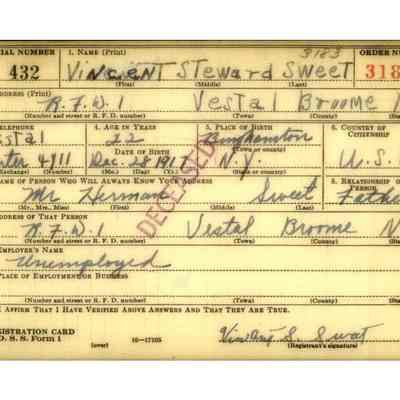 IAL NUMBER 1. NAME (Print) 3183 ORDER NU
432 VINCENT STEWARD SWEET 318
(First) (Middle) (Last)
ADDRESS (Print)
R.F.D. 1 Vestal Broome N
(Number and street or R. F. D. number) (Town) (County) (Sta
TELEPHONE 4. AGE IN YEARS 5. PLACE OF BIRTH 6. COUNTRY OF CITIZENSHIP
estal 22 Binghamton
DATE OF BIRTH (Town or county)
4911 Dec. 28 1917 N.Y. U.S.
(Exchange) (Number) (Mo.) (Day) (Yr.) (State or country)
NAME OF PERSON WHO WILL ALWAYS KNOW YOUR ADDRESS 8. RELATIONSHIP OF PERSON
Mr. Herman Sweet Fathe
(Mr., Mrs., Miss) (First) (Middle) (Last)
DECEASED
ADDRESS OF THAT PERSON
R.F.D. 1 Vestal Broome N
(Number and street or R. F. D. number) (Town) (County) (Sta
EMPLOYER'S NAME
Unemployed
PLACE OF EMPLOYMENT OR BUSINESS
(Number and street or R. F. D. number) (Town) (County) (Sta
I AFFIRM THAT I HAVE VERIFIED ABOVE ANSWERS AND THAT THEY ARE TRUE.
REGISTRATION CARD
D. S. S. Form 1 (over) 16—17105 Vincent S. Sweet
(Registrant's signature)